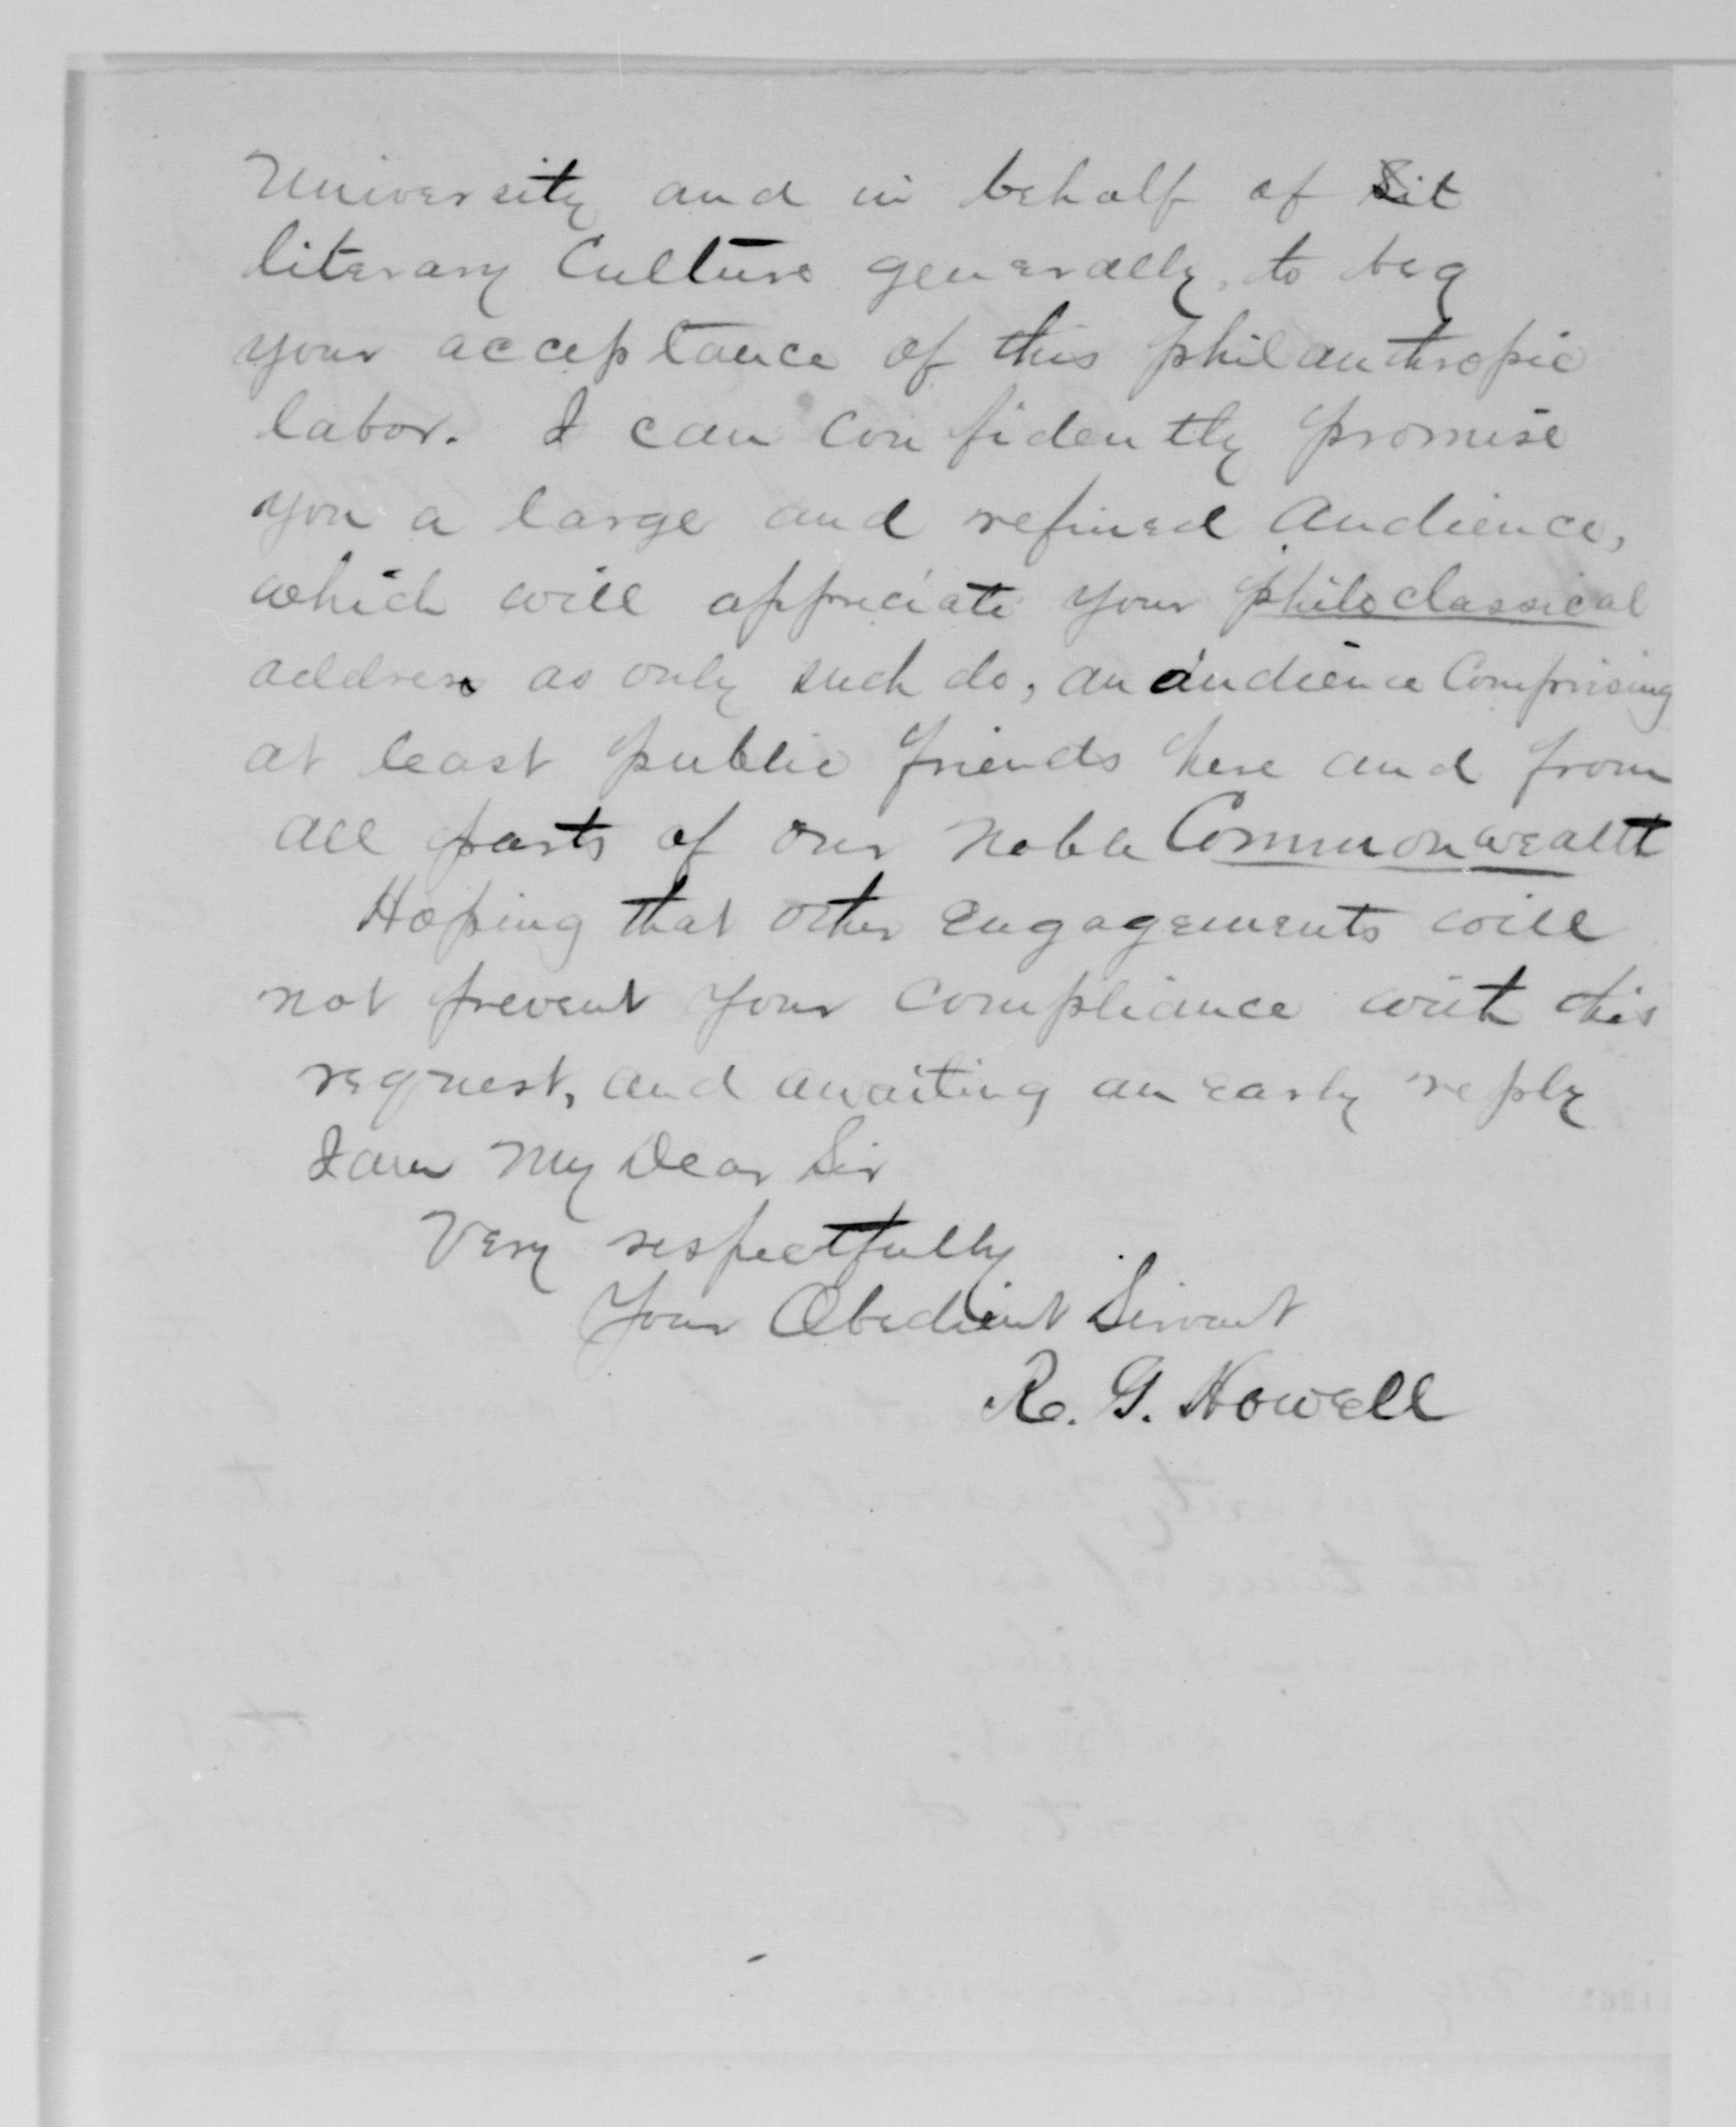 University and in behalf of Lit
literary Culture generally, to beg
your acceptance of this philanthropic
labor. I can confidently promise
you a large and refined audience,
which will appreciate your philoclassical
address as only such do, an audience Comprising
at least public friends here and from
all parts of our noble Commonwealth
Hoping that other engagements will
not prevent your compliance with this
request, and awaiting an early reply
I am My Dear Sir
Very respectfully
Your Obedient Servant
R. G. Howell